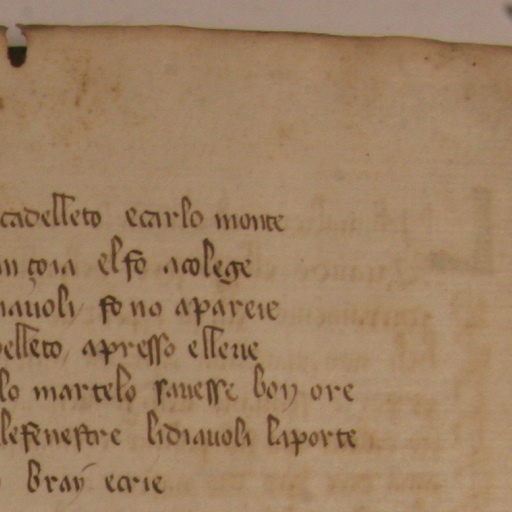 cadelleto ecarlo monte
n çoia elso acolege
iauoli / sono apareie
elleto / apresso elleue
lo martelo sauesse bon ore
lefenestre lidiauoli laporte
bray ecrie